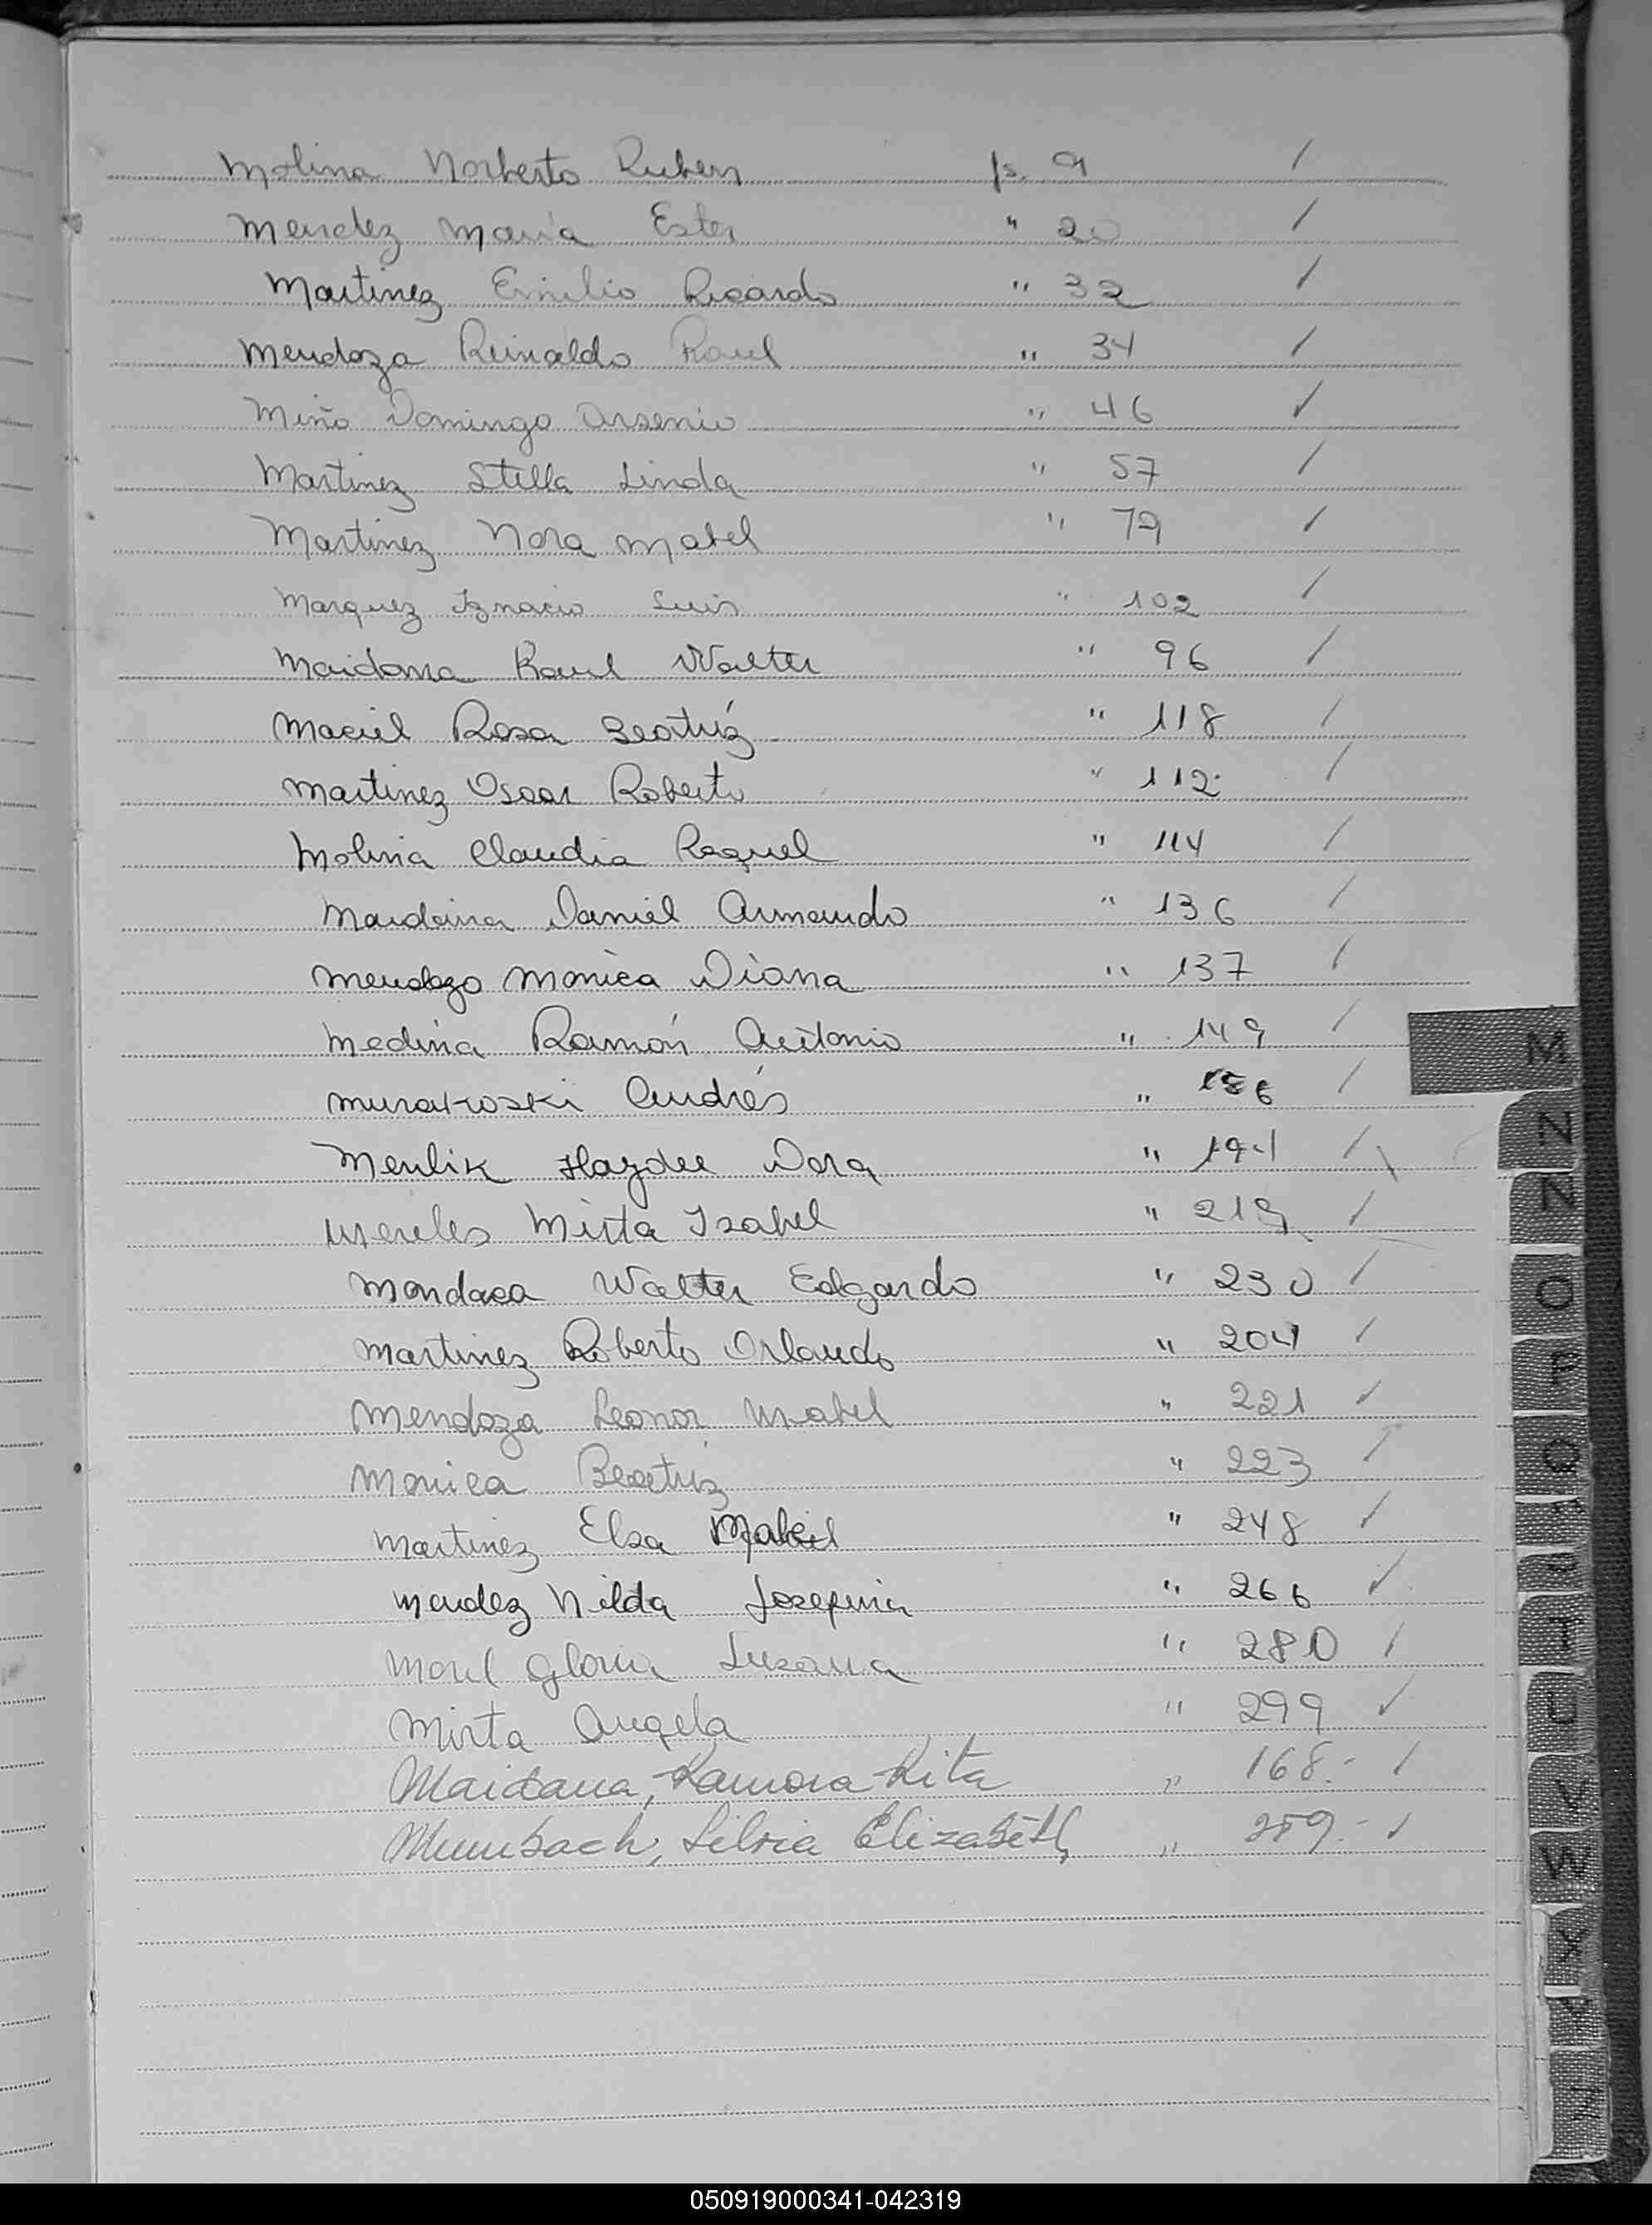 Molina Norberto Ruben fs. 9 /
Mendez Maria Ester " 20 /
Martinez Emilio Ricardo " 32 /
Mendoza Reinaldo Raul " 34 /
Miño Domingo Arsenio " 46 ✓
Martinez Stella Linda " 57 /
Martinez Nora Mabel " 79 /
Marquez Ignacio Luis " 102 /
Maidana Raul Walter " 96 /
Maciel Rosa Beatríz " 118 /
Martinez Oscar Roberto " 112 /
Molina Claudia Raquel " 114 /
Maidana Daniel Armando " 136 /
Mendoza Monica Diana " 137 /
Medina Ramón Antonio " 149 /
Murakoski Andrés " /
Menlik Haydee Dora " 191 /
Mereles Mirta Isabel " 219 /
Mondaca Walter Edgardo " 230 /
Martinez Roberto Orlando " 204 /
Mendoza Leonor Mabel " 221 ✓
Monica Beatriz " 223 /
Martinez Elsa Mabel " 248 /
Mendez Nilda Josefina " 266 ✓
Morel Gloria Susana " 280 /
Mirta Angela " 299 ✓
Maidana, Ramona Rita " 168.- /
Mumbach, Silvia Elizabeth " 259.- /
M
N
Ñ
O
P
Q
T
U
V
W
X
Y
Z
050919000341-042319